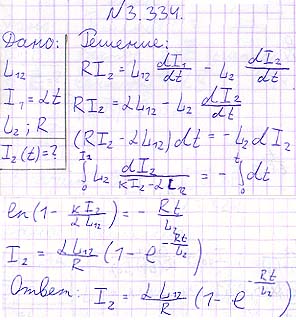 N3.334.
Дано: Решение:
L₁₂
I₁ = αt
L₂; R
I₂(t) = ?
RI₂ = L₁₂ dI₁/dt - L₂ dI₂/dt
RI₂ = αL₁₂ - L₂ dI₂/dt
(RI₂ - αL₁₂)dt = -L₂dI₂
∫₀^I₂ L₂ dI₂/(RI₂ - αL₁₂) = -∫₀^t dt
ln(1 - RI₂/(αL₁₂)) = - Rt/L₂
I₂ = αL₁₂/R (1 - e^(-Rt/L₂))
Ответ: I₂ = αL₁₂/R (1 - e^(-Rt/L₂))